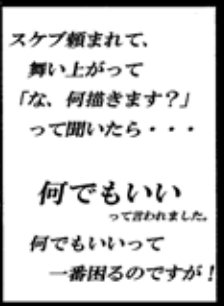 スケブ頼まれて、
舞い上がって
「な、何描きます？」
って聞いたら・・・
何でもいい
って言われました。
何でもいいって
一番困るのですが！